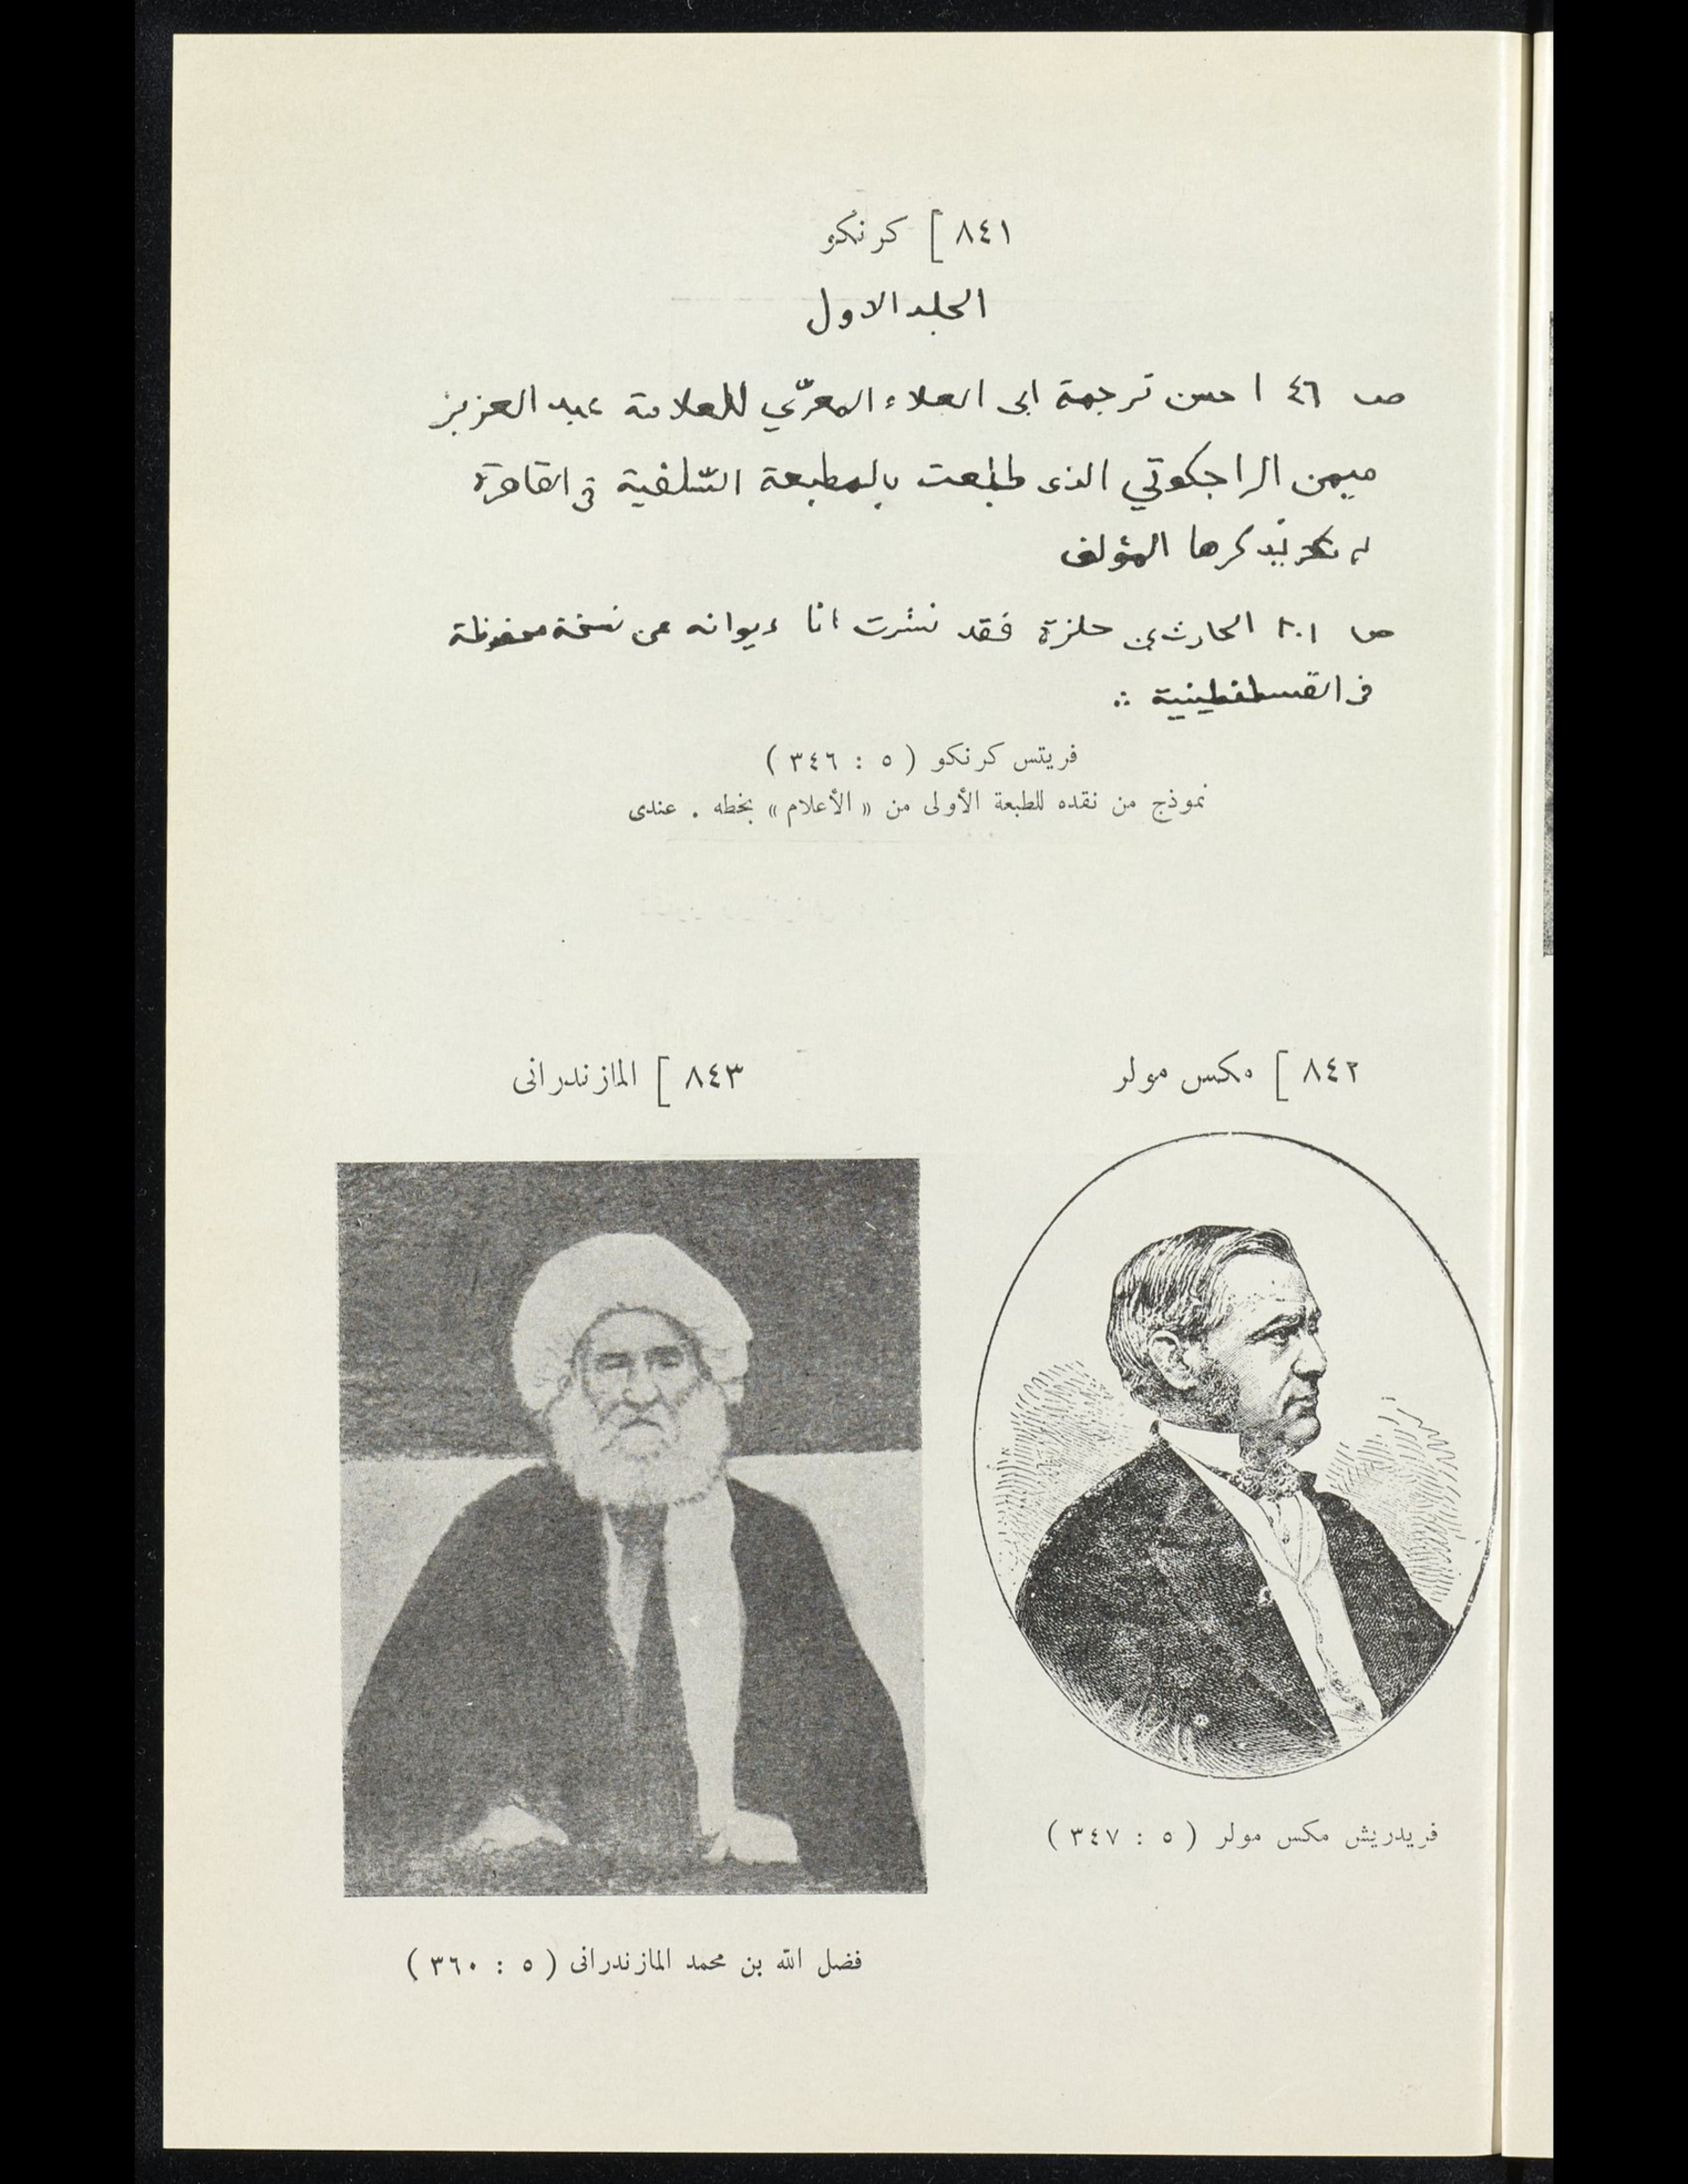 ٨٤١ [ كرنكو
الجلد الاول
ص ٤٦ احسن ترجمة ابى العلاء المعرّي للعلامة عبد العزيز
ميمن الراجكوتي الذى طبعت بالمطبعة السّلفية فى القاهرة
لم يذكرها المؤلف
ص ٢٠١ الحارث بن حلزة فقد نشرت انا ديوانه عن نسخة محفوظة
فى القسطنطينية
فريتس كرنكو ( ٥ : ٣٤٦ )
نموذج من نقده للطبعة الأولى من « الأعلام » بخطه . عندى
٨٤٢ [ مكس مولر
٨٤٣ [ المازندرانى
فريدريش مكس مولر ( ٥ : ٣٤٧ )
فضل الله بن محمد المازندرانى ( ٥ : ٣٦٠ )